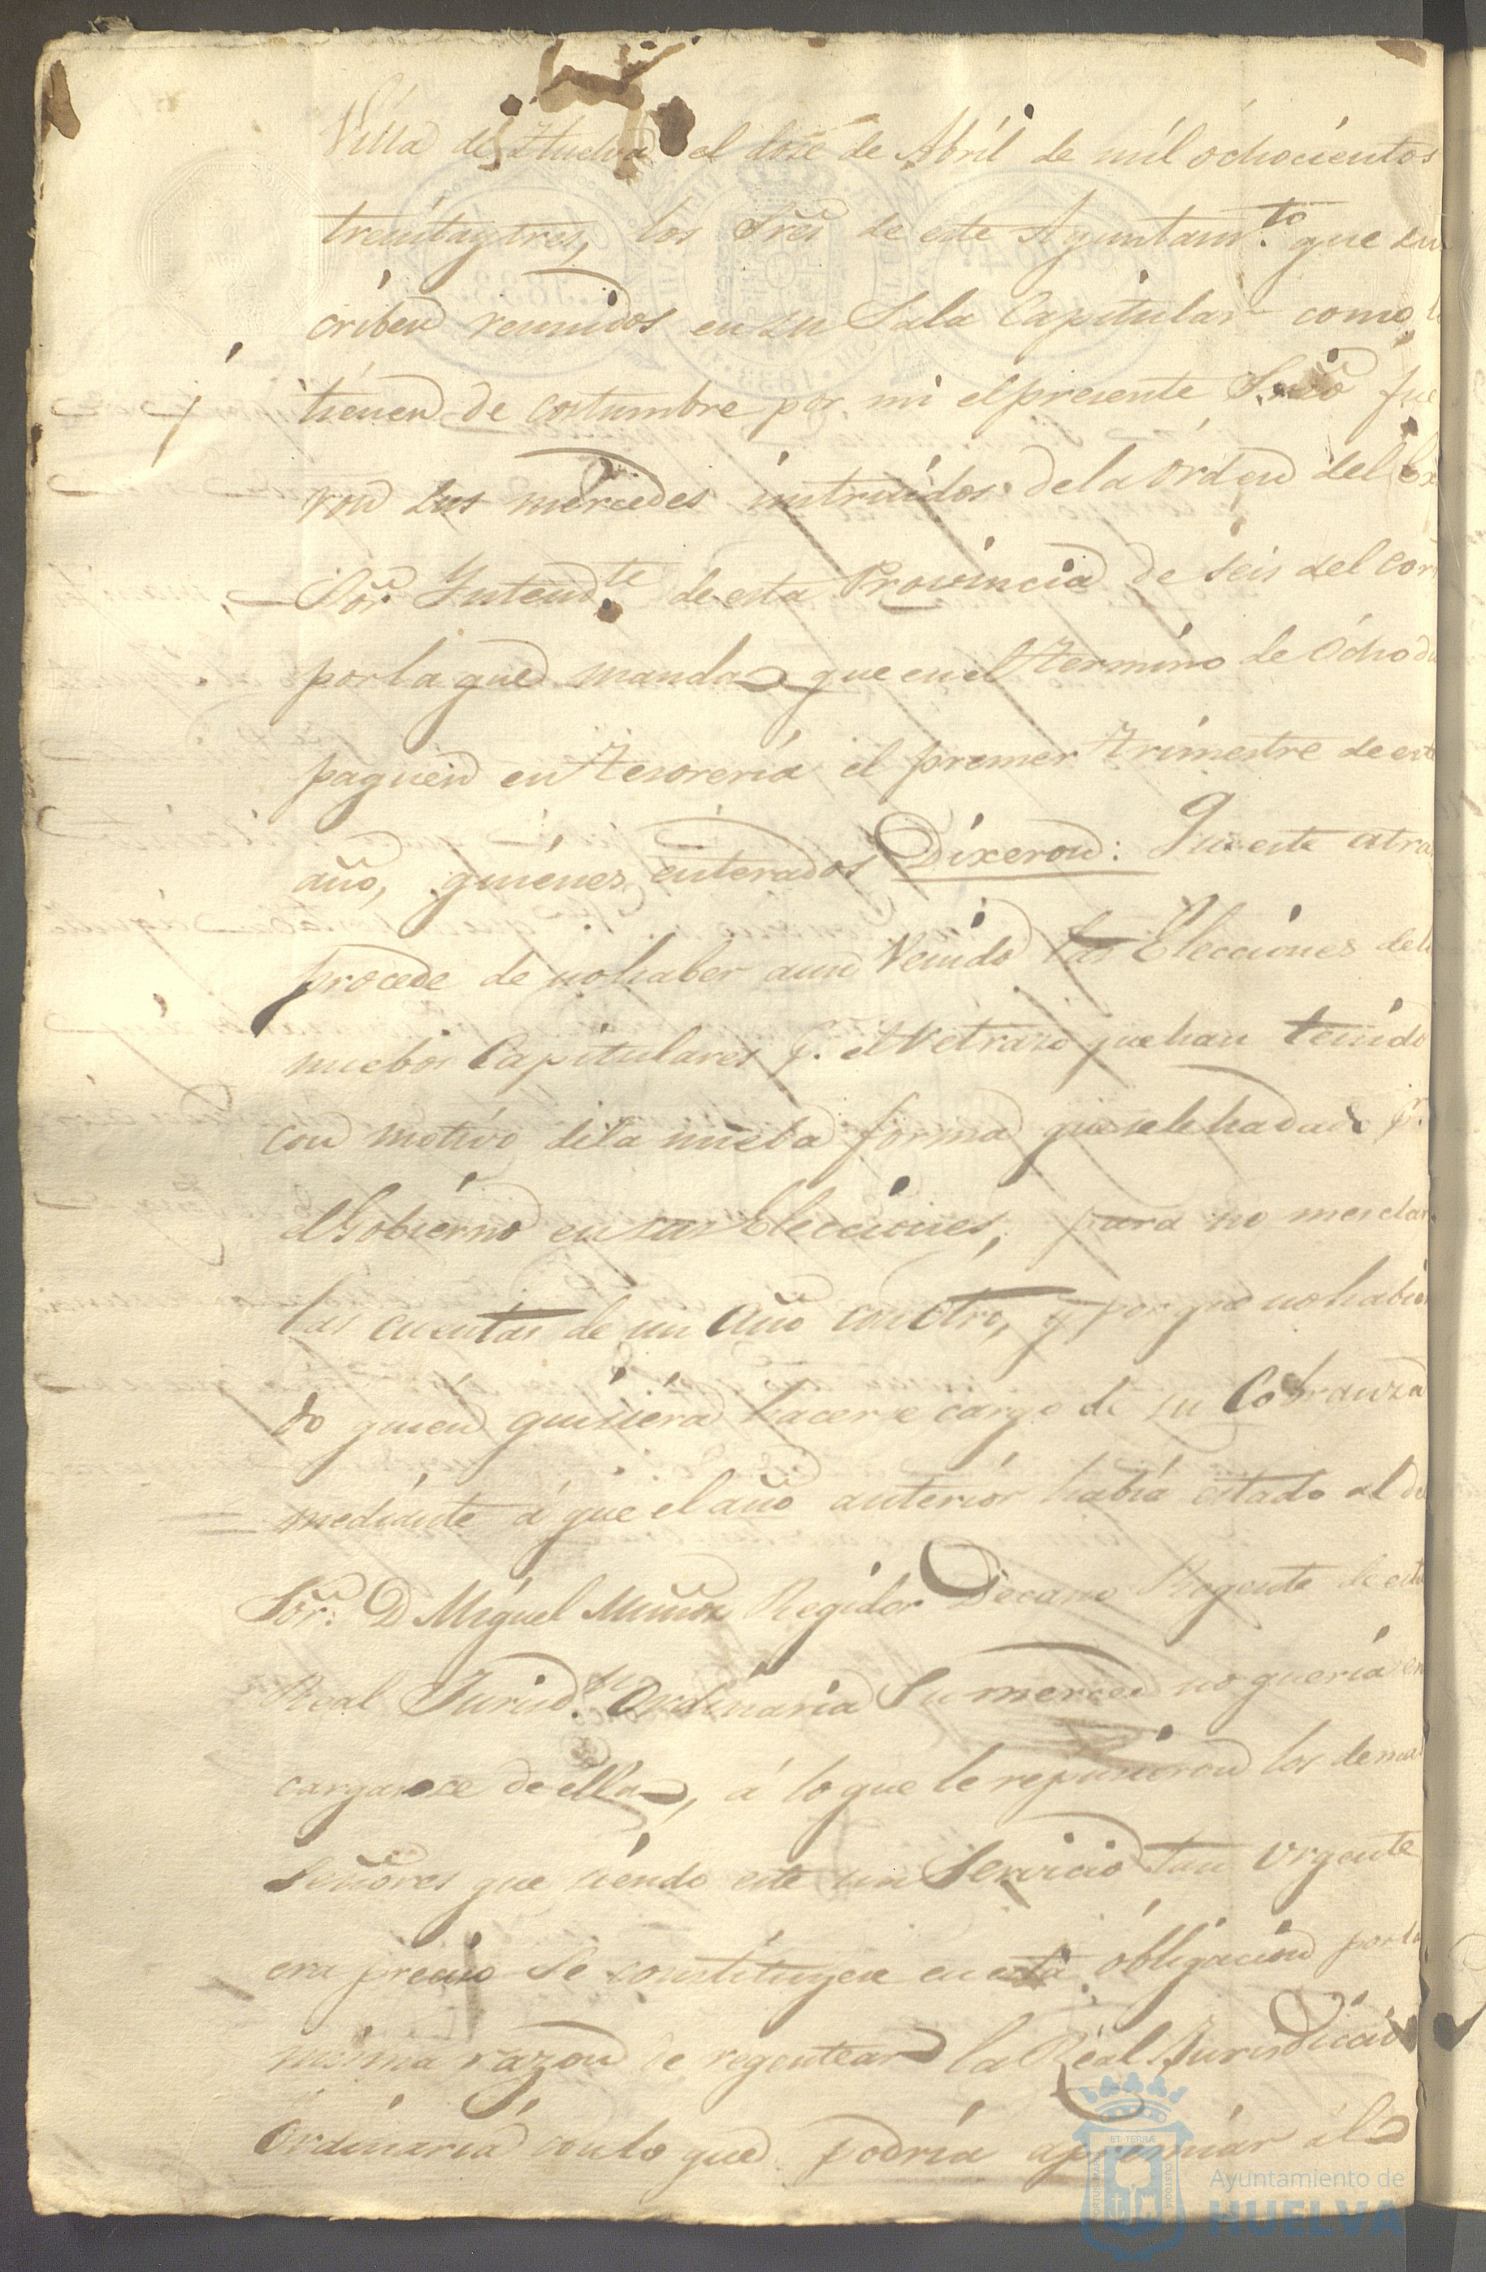 Villa de Huelva el dose de Abril de mil ochocientos
treintaytres, los Sres de este Ayuntam.to que sus
criben reunidos en su Sala Capitular como lo
tienen de costumbre por mi el presente Srio fue
ron sus mercedes intruidos de la orden del Ex
Sor Intend.te de esta Provincia de seis del corr
por la que manda que en el termino de ocho di
paguen en Tesoreria el premer trimestre de este
año, quienes enterados Dixeron: Que este atra
procede de no haber aun Venido las Elecciones de lo
nuebos Capitulares p.r el retraso que han tenido
con motivo de la nueba forma que se le ha dado p.r
el Gobierno en sus Elecciones, para no mesclar
las cuentas de un año con otro, y por que no habien
do quien quisiera hacerse cargo de su Cobranza
mediante á que el año anterior habia estado al de
Sor. D Miguel Muñoz Regidor Decano Regente de esta
Real Jurisd.on Ordinaria Su merced no queria en
cargarce de ella, á lo que le repusieron los demas
señores que siendo este un Servicio tan Urgente
era preciso se constituyese en esta obligacion por la
misma razon de regentear la Real Jurisdiccio
Ordinaria con lo que podria apremiar á l
ET TERRÆ
CUSTODIA
Ayuntamiento de
HUELVA